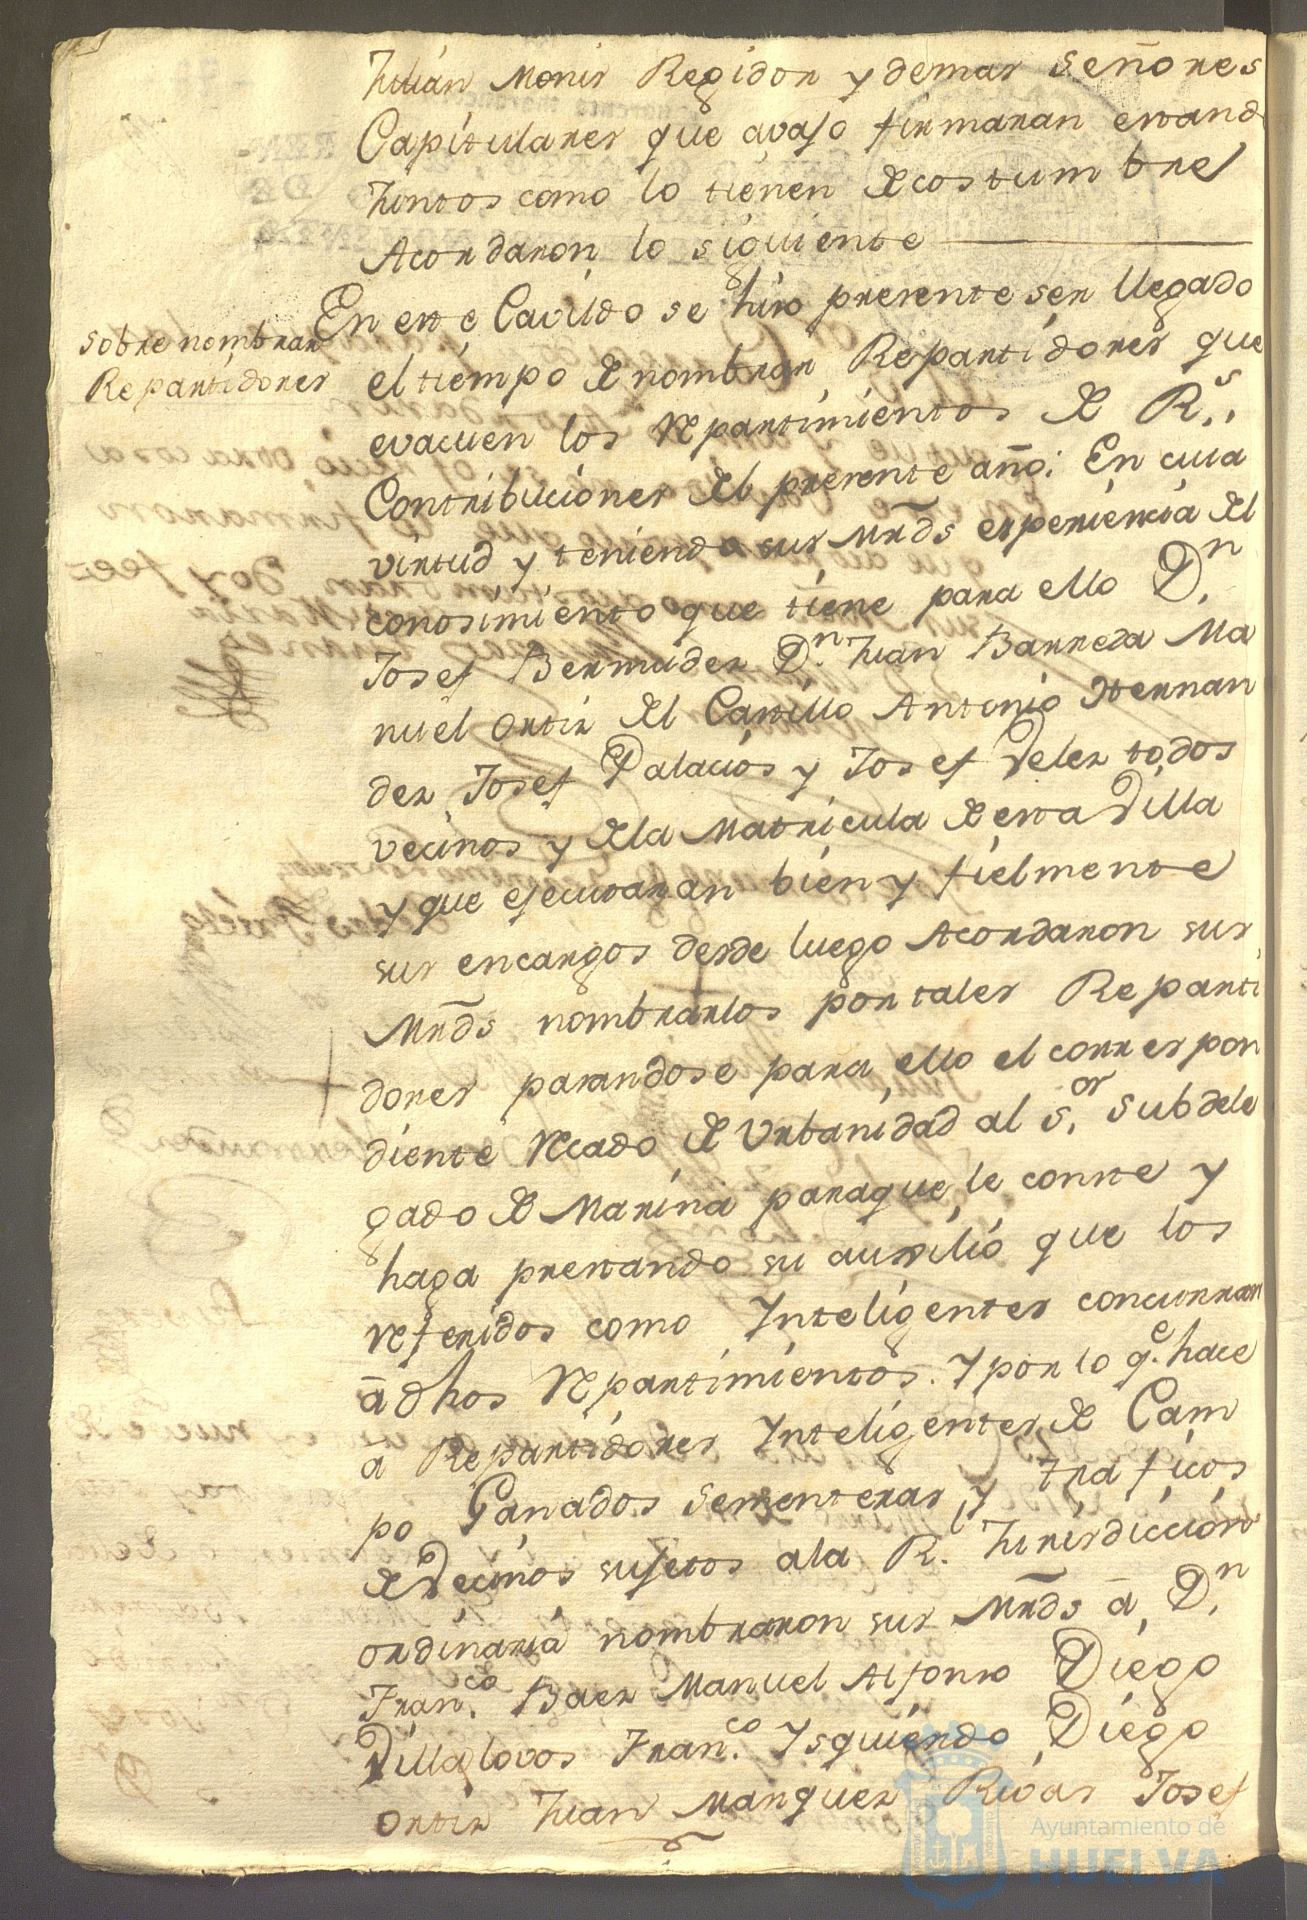 Julian Monis Regidor y demas Señores
Capitulares que avajo firmaran estand
Juntos como lo tienen de costumbre
Acordaron lo siguiente
En este Cavildo se hizo presente ser llegado
sobre nombrar
Repartidores
el tiempo de nombrar Repartidores que
evacuen los repartimientos de R.s
Contribuciones del presente año: En cuia
virtud y teniendo sus Mrds experiencia del
conosimiento que tiene para ello D.n
Josef Bermudez D.n Juan Barreda Ma
nuel Ortiz del Castillo Antonio Hernan
dez Josef Palacios y Josef Velez todos
vecinos y dela Matricula de esta Villa
y que ejecutaran bien y fielmente
sus encargos desde luego Acordaron sus
Mrds nombrarlos por tales Reparti
dores pasandose para ello el correspon
diente recado de Urbanidad al S.or Subdele
gado de Marina paraque le conste y
haga prestando su auxilio que los
referidos como Inteligentes concurran
â dhos repartimientos. Y por lo q.e hace
â Repartidores Inteligentes de Cam
po Ganados Sementeras y traficos
de Vecinos sujetos ala R.l Jurisdiccion
ordinaria nombraron sus Mrds â D.n
Fran.co Baez Manuel Alfonso Diego
Villalovos Fran.co Ysquierdo Diego
Ortiz Juan Marquez Rivas Josef
Ayuntamiento de
HUELVA